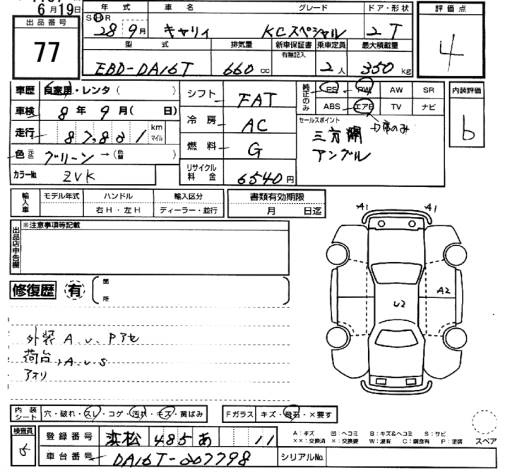 6月19日
出品番号
77
年式 車名 グレード ドア・形状
28年9月 キャリィ KCスペシャル 2T
型式 排気量 新車保証書 乗車定員 最大積載量
有無記入
EBD-DA16T 660cc 2人 350kg
評価点
4
車歴 自家用・レンタ( )
車検 8年9月( 日)
走行 87,831 km マイル
色 グリーン→( )
カラーNo ZVK
シフト FAT
冷房 AC
燃料 G
リサイクル料金 6540円
純正のみ PS PW AW SR
ABS エアB TV ナビ
セールスポイント
三方開
アングル
内装評価
b
輸入車 モデル年式 ハンドル 輸入区分
年 右H・左H ディーラー・並行
書類有効期限
月 日迄
出品店申告欄
※注意事項等記載
修復歴 有 箇所
A1 A1
A2
U2
外装 A、U、Pアセ
荷台、A、U、S
アオリ
内装シート 穴・破れ・スレ・コゲ・汚れ・キズ・黄ばみ
Fガラス キズ・飛石・×要す
検査員
登録番号 浜松 485 あ 11
車台番号 DA16T-207798 シリアルNo.
A:キズ U:ヘコミ B:キズ&ヘコミ S:サビ
××:交換済 ×:交換要 W:波有 C:腐食有 P:塗装
スペア